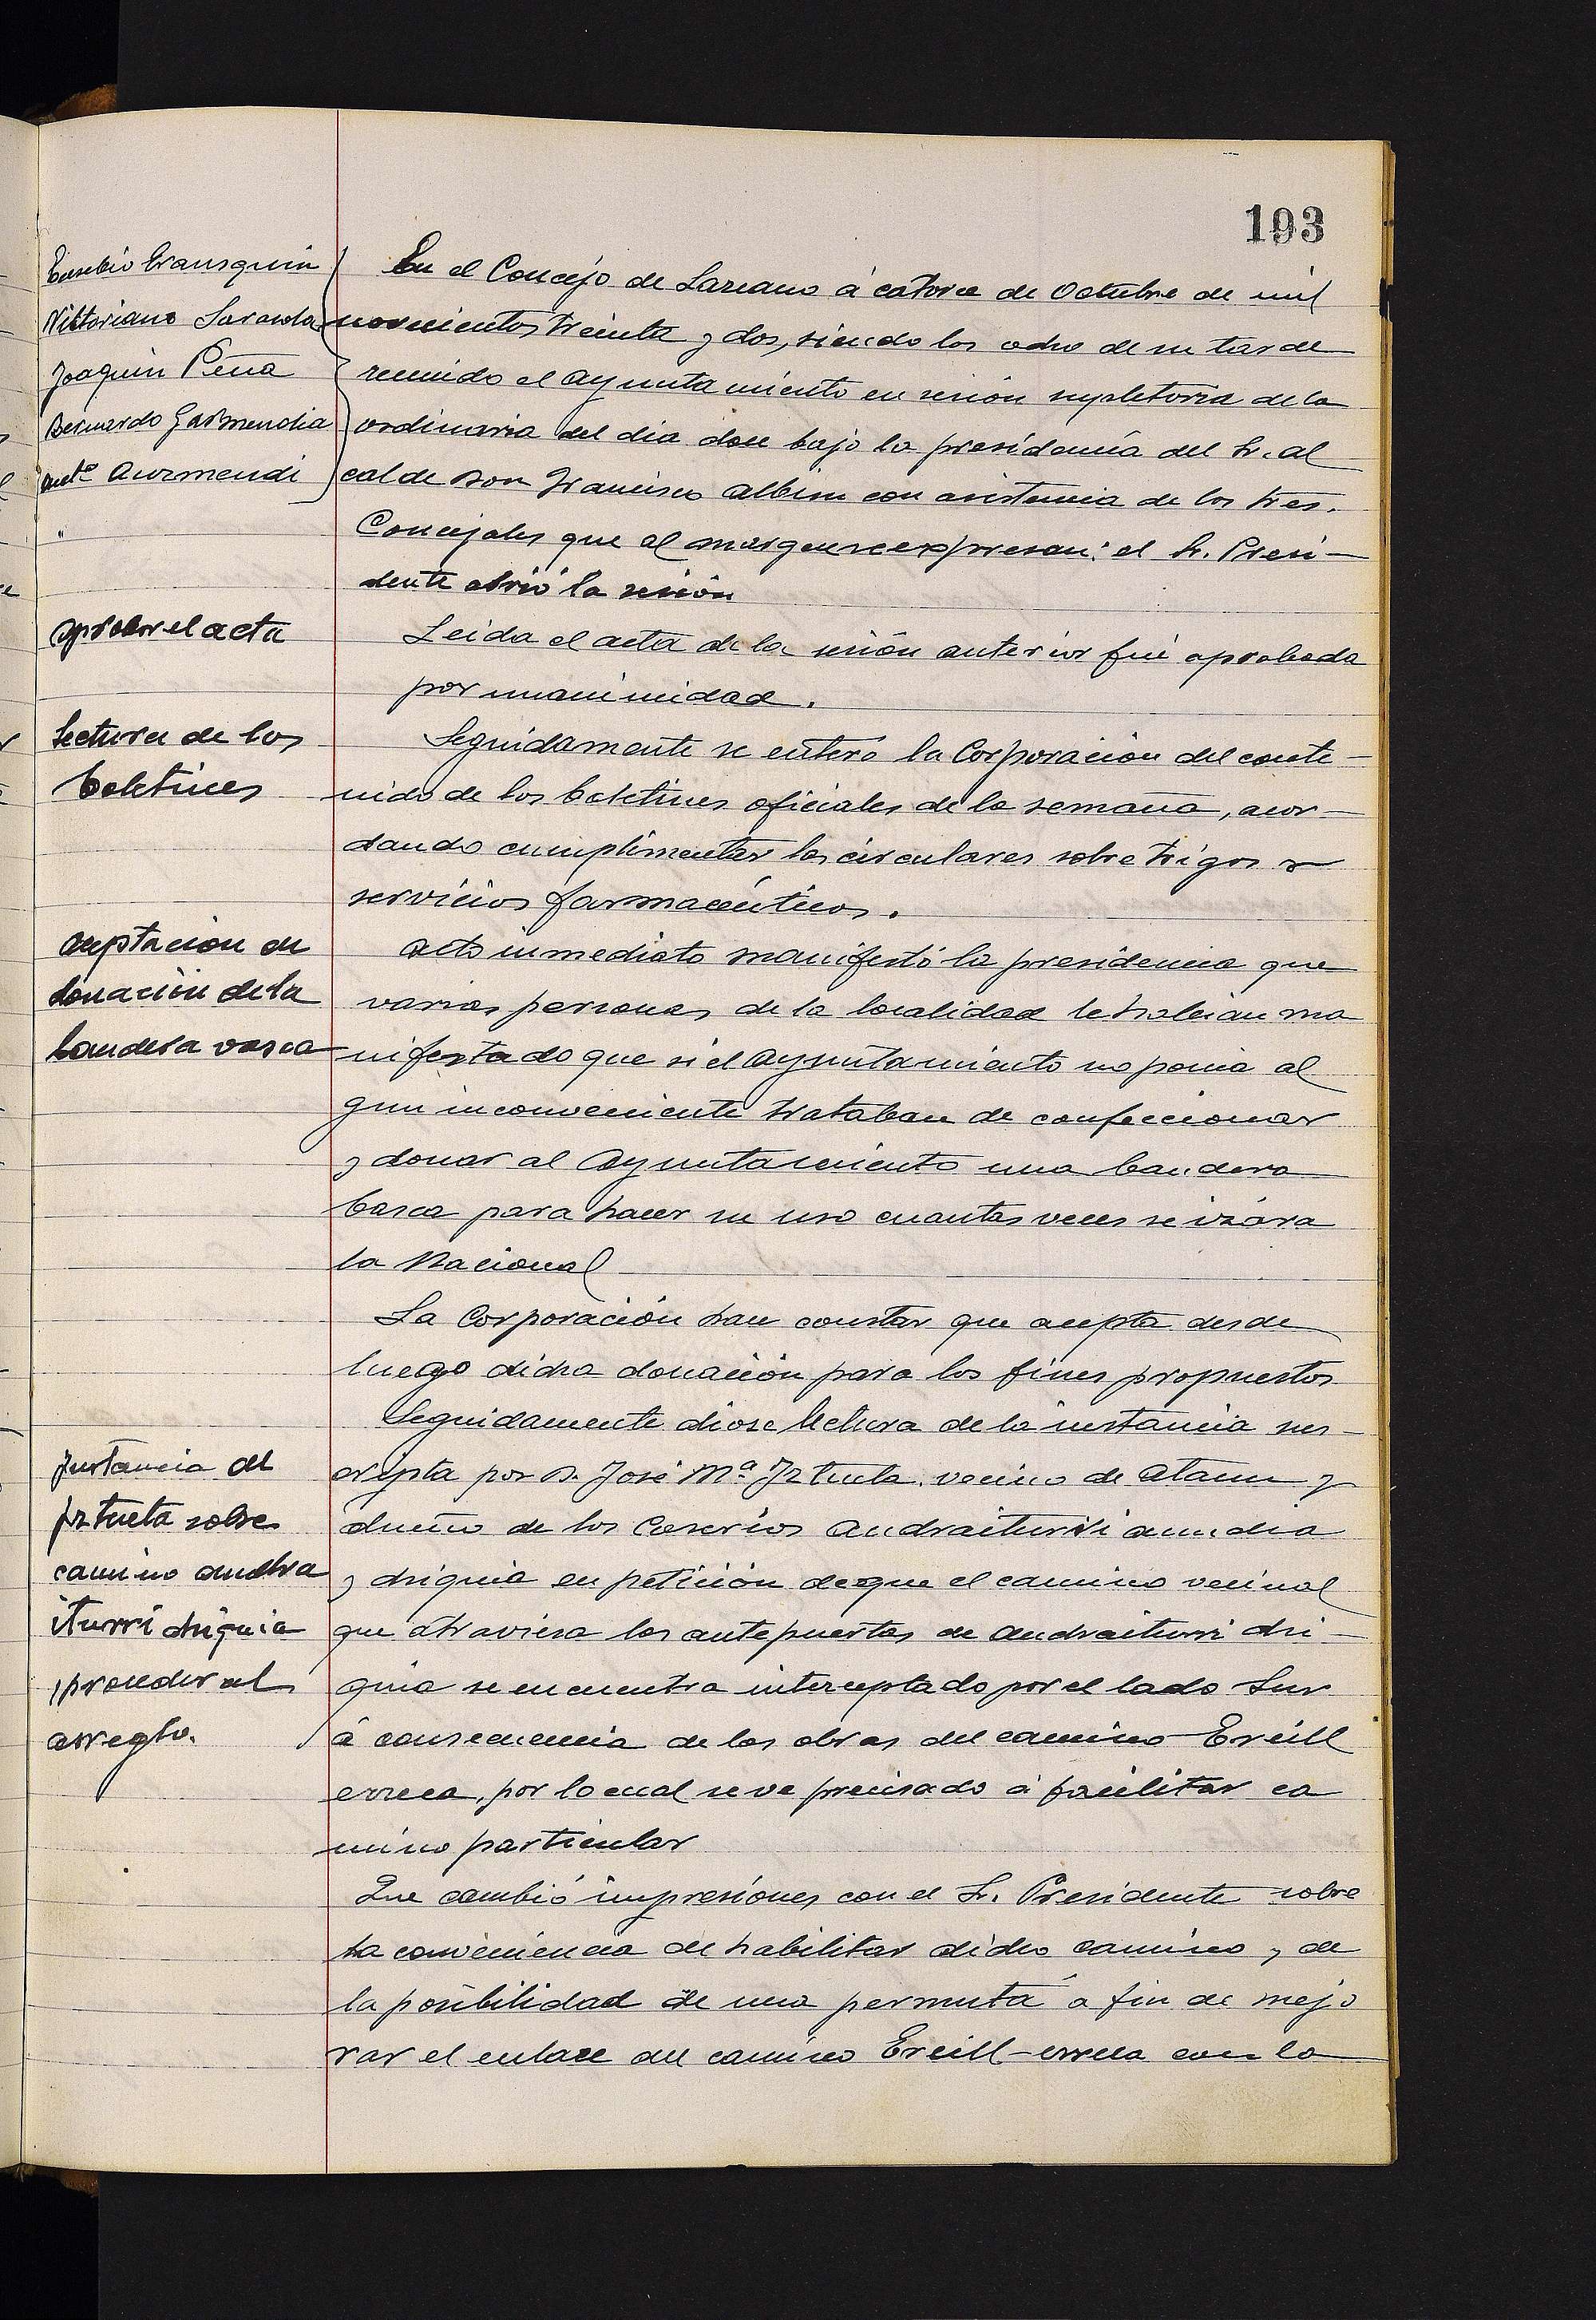 193
Eusebio Iransquin
Vittoriano Sarasola
Joaquin Peña
Bernardo Garmendia
Anto Aurmendi
"
En el Concejo de Lazcano á catorce de Octubre de mil
novecientos treinta y dos, siendo las ocho de su tarde
reunido el Ayuntamiento en sesión supletoria de la
ordinaria del dia doce bajo la presidencia del Sr. Al
calde Don Francisco Albisu con asistencia de los Sres.
Concejales que al margen se expresan: el Sr. Presi-
dente abrió la sesión
aprobar el acta
Leida el acta de la sesión anterior fué aprobada
por unanimidad.
Lectura de los
boletines
Seguidamente se enteró la Corporación del conte-
nido de los boletines oficiales de la semana, acor-
dando cumplimentar las circulares sobre trigos y
servicios farmacéuticos.
Aceptacion de
donación de la
bandera vasca
Acto inmediato manifestó la presidencia que
varias personas de la localidad le habian ma
nifestado que si el Ayuntamiento no ponia al
gun inconveniente trataban de confeccionar
y donar al Ayuntamiento una bandera
basca para hacer su uso cuantas veces se izára
la Nacional
La Corporación hace constar que acepta desde
luego dicha donación para los fines propuestos
Instancia de
Iztueta sobre
camino andra
iturri chiquia
proceder al
arreglo.
Seguidamente diose lectura de la instancia sus-
cripta por D. José Mª Iztueta, vecino de Ataun y
dueño de los Caserios Andraiturri aundia
y chiquia en petición de que el camino vecinal
que atraviesa los antepuertas de Andraiturri chi-
quia se encuentra interceptado por el lado Sur
á consecuencia de las obras del camino Ereill
erreca, por lo cual se ve precisado á facilitar ca
mino particular
Que cambió impresiones con el Sr. Presidente sobre
la conveniencia de habilitar dicho camino y de
la posibilidad de una permuta a fin de mejo
rar el enlace del camino Ereill-erreca con la